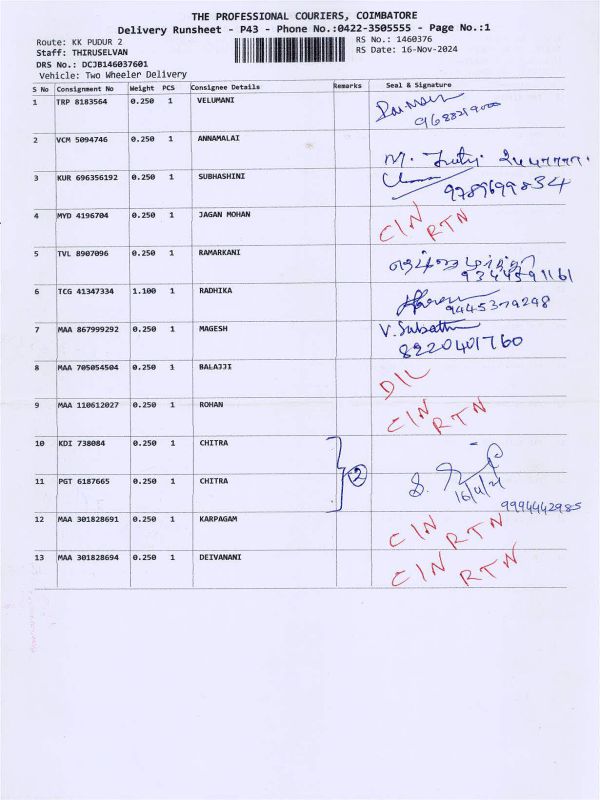 THE PROFESSIONAL COURIERS, COIMBATORE
Delivery Runsheet - P43 - Phone No.:0422-3505555 - Page No.:1
Route: KK PUDUR 2
RS No.: 1460376
Staff: THIRUSELVAN
RS Date: 16-Nov-2024
DRS No.: DCJB146037601
Vehicle: Two Wheeler Delivery
S No Consignment No Weight PCS Consignee Details Remarks Seal & Signature
1 TRP 8183564 0.250 1 VELUMANI
2 VCM 5094746 0.250 1 ANNAMALAI
3 KUR 696356192 0.250 1 SUBHASHINI
9789699834
4 MYD 4196704 0.250 1 JAGAN MOHAN CIN RTN
5 TVL 8907096 0.250 1 RAMARKANI
9344591161
6 TCG 41347334 1.100 1 RADHIKA
9445379298
7 MAA 867999292 0.250 1 MAGESH V. Subath
8220401760
8 MAA 705054504 0.250 1 BALAJJI D/L
9 MAA 110612027 0.250 1 ROHAN CIN RTN
10 KDI 738084 0.250 1 CHITRA
2
11 PGT 6187665 0.250 1 CHITRA
16/11/24
9994442985
12 MAA 301828691 0.250 1 KARPAGAM CIN RTN
13 MAA 301828694 0.250 1 DEIVANANI CIN RTN